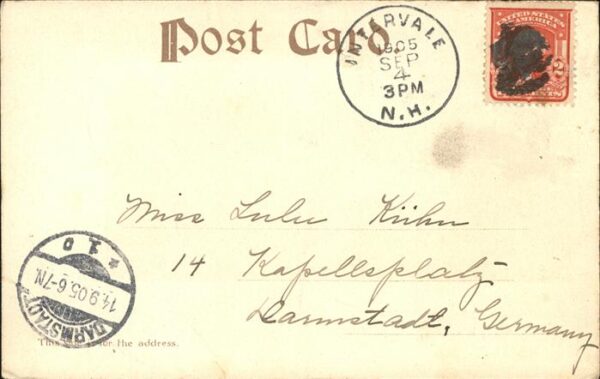 Post Card.
INTERVALE
1905
SEP
4
3PM
N.H.
UNITED STATES
AMERICA
2
CENTS
Miss Lulu Kühn
14 Kapellsplatz
Darmstadt, Germany
* 1 D
14.9.05.6-7N.
DARMSTADT
This for the address.